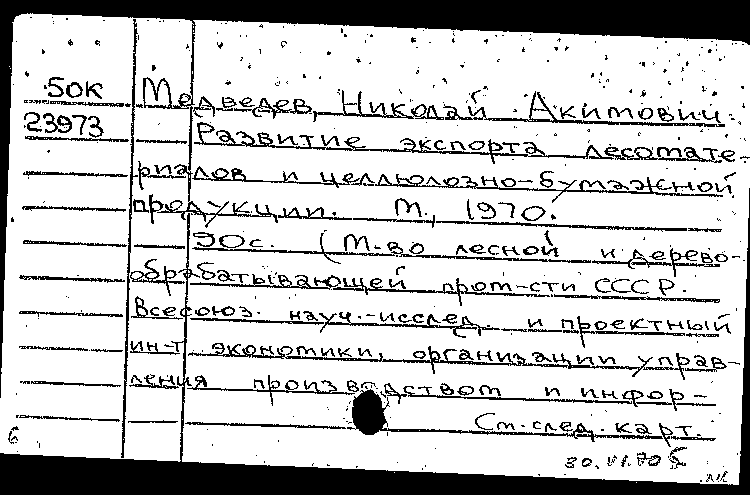 50К Медведев, Николай Акимович.
23973 Развитие экспорта лесомате-
риалов и целлюлозно-бумажной
продукции. М., 1970.
90с. (М-во лесной и дерево-
обрабатывающей пром-сти СССР.
Всесоюз. науч.-исслед. и проектный
ин-т экономики, организации управ-
ления производством и инфор-
См. след. карт.
6